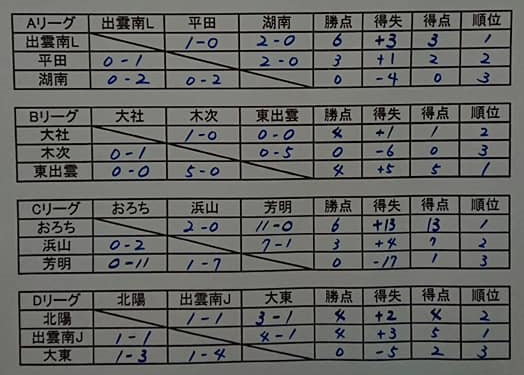 Aリーグ 出雲南L 平田 湖南 勝点 得失 得点 順位
出雲南L 1-0 2-0 6 +3 3 1
平田 0-1 2-0 3 +1 2 2
湖南 0-2 0-2 0 -4 0 3
Bリーグ 大社 木次 東出雲 勝点 得失 得点 順位
大社 1-0 0-0 4 +1 1 2
木次 0-1 0-5 0 -6 0 3
東出雲 0-0 5-0 4 +5 5 1
Cリーグ おろち 浜山 芳明 勝点 得失 得点 順位
おろち 2-0 11-0 6 +13 13 1
浜山 0-2 7-1 3 +4 7 2
芳明 0-11 1-7 0 -17 1 3
Dリーグ 北陽 出雲南J 大東 勝点 得失 得点 順位
北陽 1-1 3-1 4 +2 4 2
出雲南J 1-1 4-1 4 +3 5 1
大東 1-3 1-4 0 -5 2 3